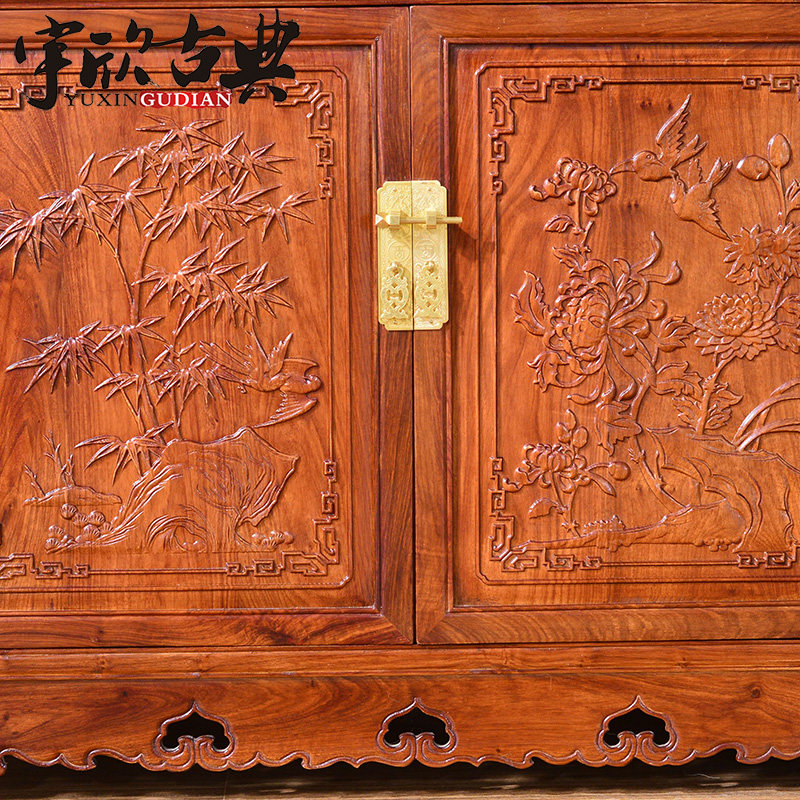 宇欣古典
YUXINGUDIAN